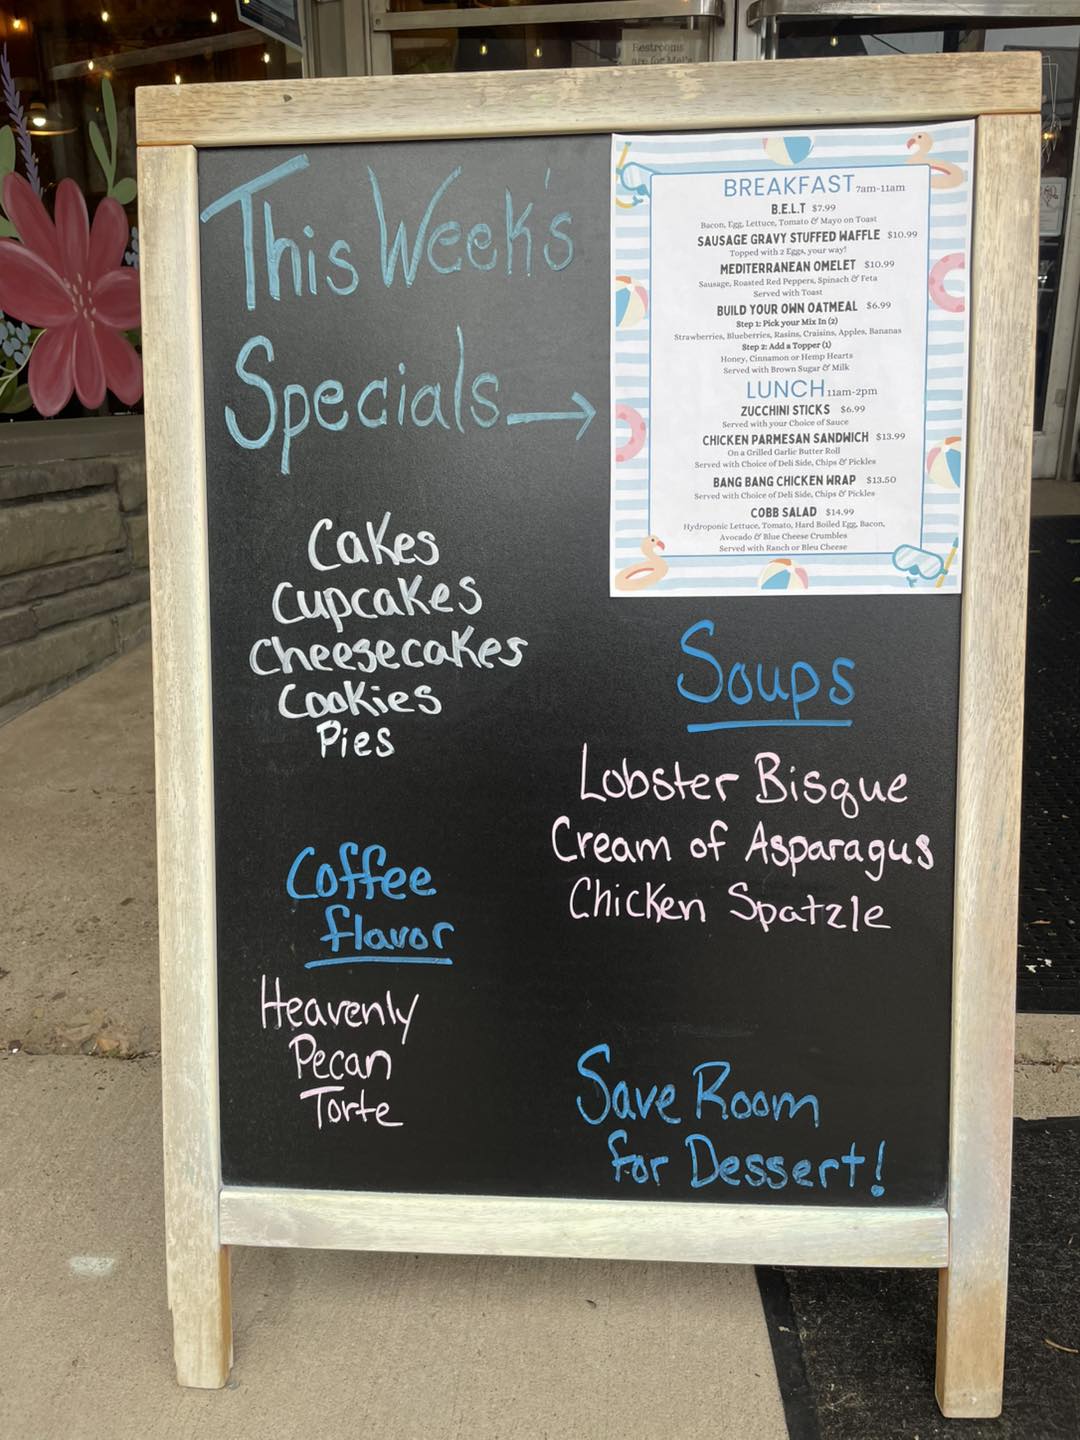 Restrooms
This Week's
Specials
BREAKFAST 7am-11am
B.E.L.T $7.99
Bacon, Egg, Lettuce, Tomato & Mayo on Toast
SAUSAGE GRAVY STUFFED WAFFLE $10.99
Topped with 2 Eggs, your way!
MEDITERRANEAN OMELET $10.99
Sausage, Roasted Red Peppers, Spinach & Feta
Served with Toast
BUILD YOUR OWN OATMEAL $6.99
Step 1: Pick your Mix In (2)
Strawberries, Blueberries, Rasins, Craisins, Apples, Bananas
Step 2: Add a Topper (1)
Honey, Cinnamon or Hemp Hearts
Served with Brown Sugar & Milk
LUNCH 11am-2pm
ZUCCHINI STICKS $6.99
Served with your Choice of Sauce
CHICKEN PARMESAN SANDWICH $13.99
On a Grilled Garlic Butter Roll
Served with Choice of Deli Side, Chips & Pickles
BANG BANG CHICKEN WRAP $13.50
Served with Choice of Deli Side, Chips & Pickles
COBB SALAD $14.99
Hydroponic Lettuce, Tomato, Hard Boiled Egg, Bacon,
Avocado & Blue Cheese Crumbles
Served with Ranch or Bleu Cheese
Cakes
Cupcakes
Cheesecakes
Cookies
Pies
Coffee
flavor
Heavenly
Pecan
Torte
Soups
Lobster Bisque
Cream of Asparagus
Chicken Spatzle
Save Room
for Dessert!